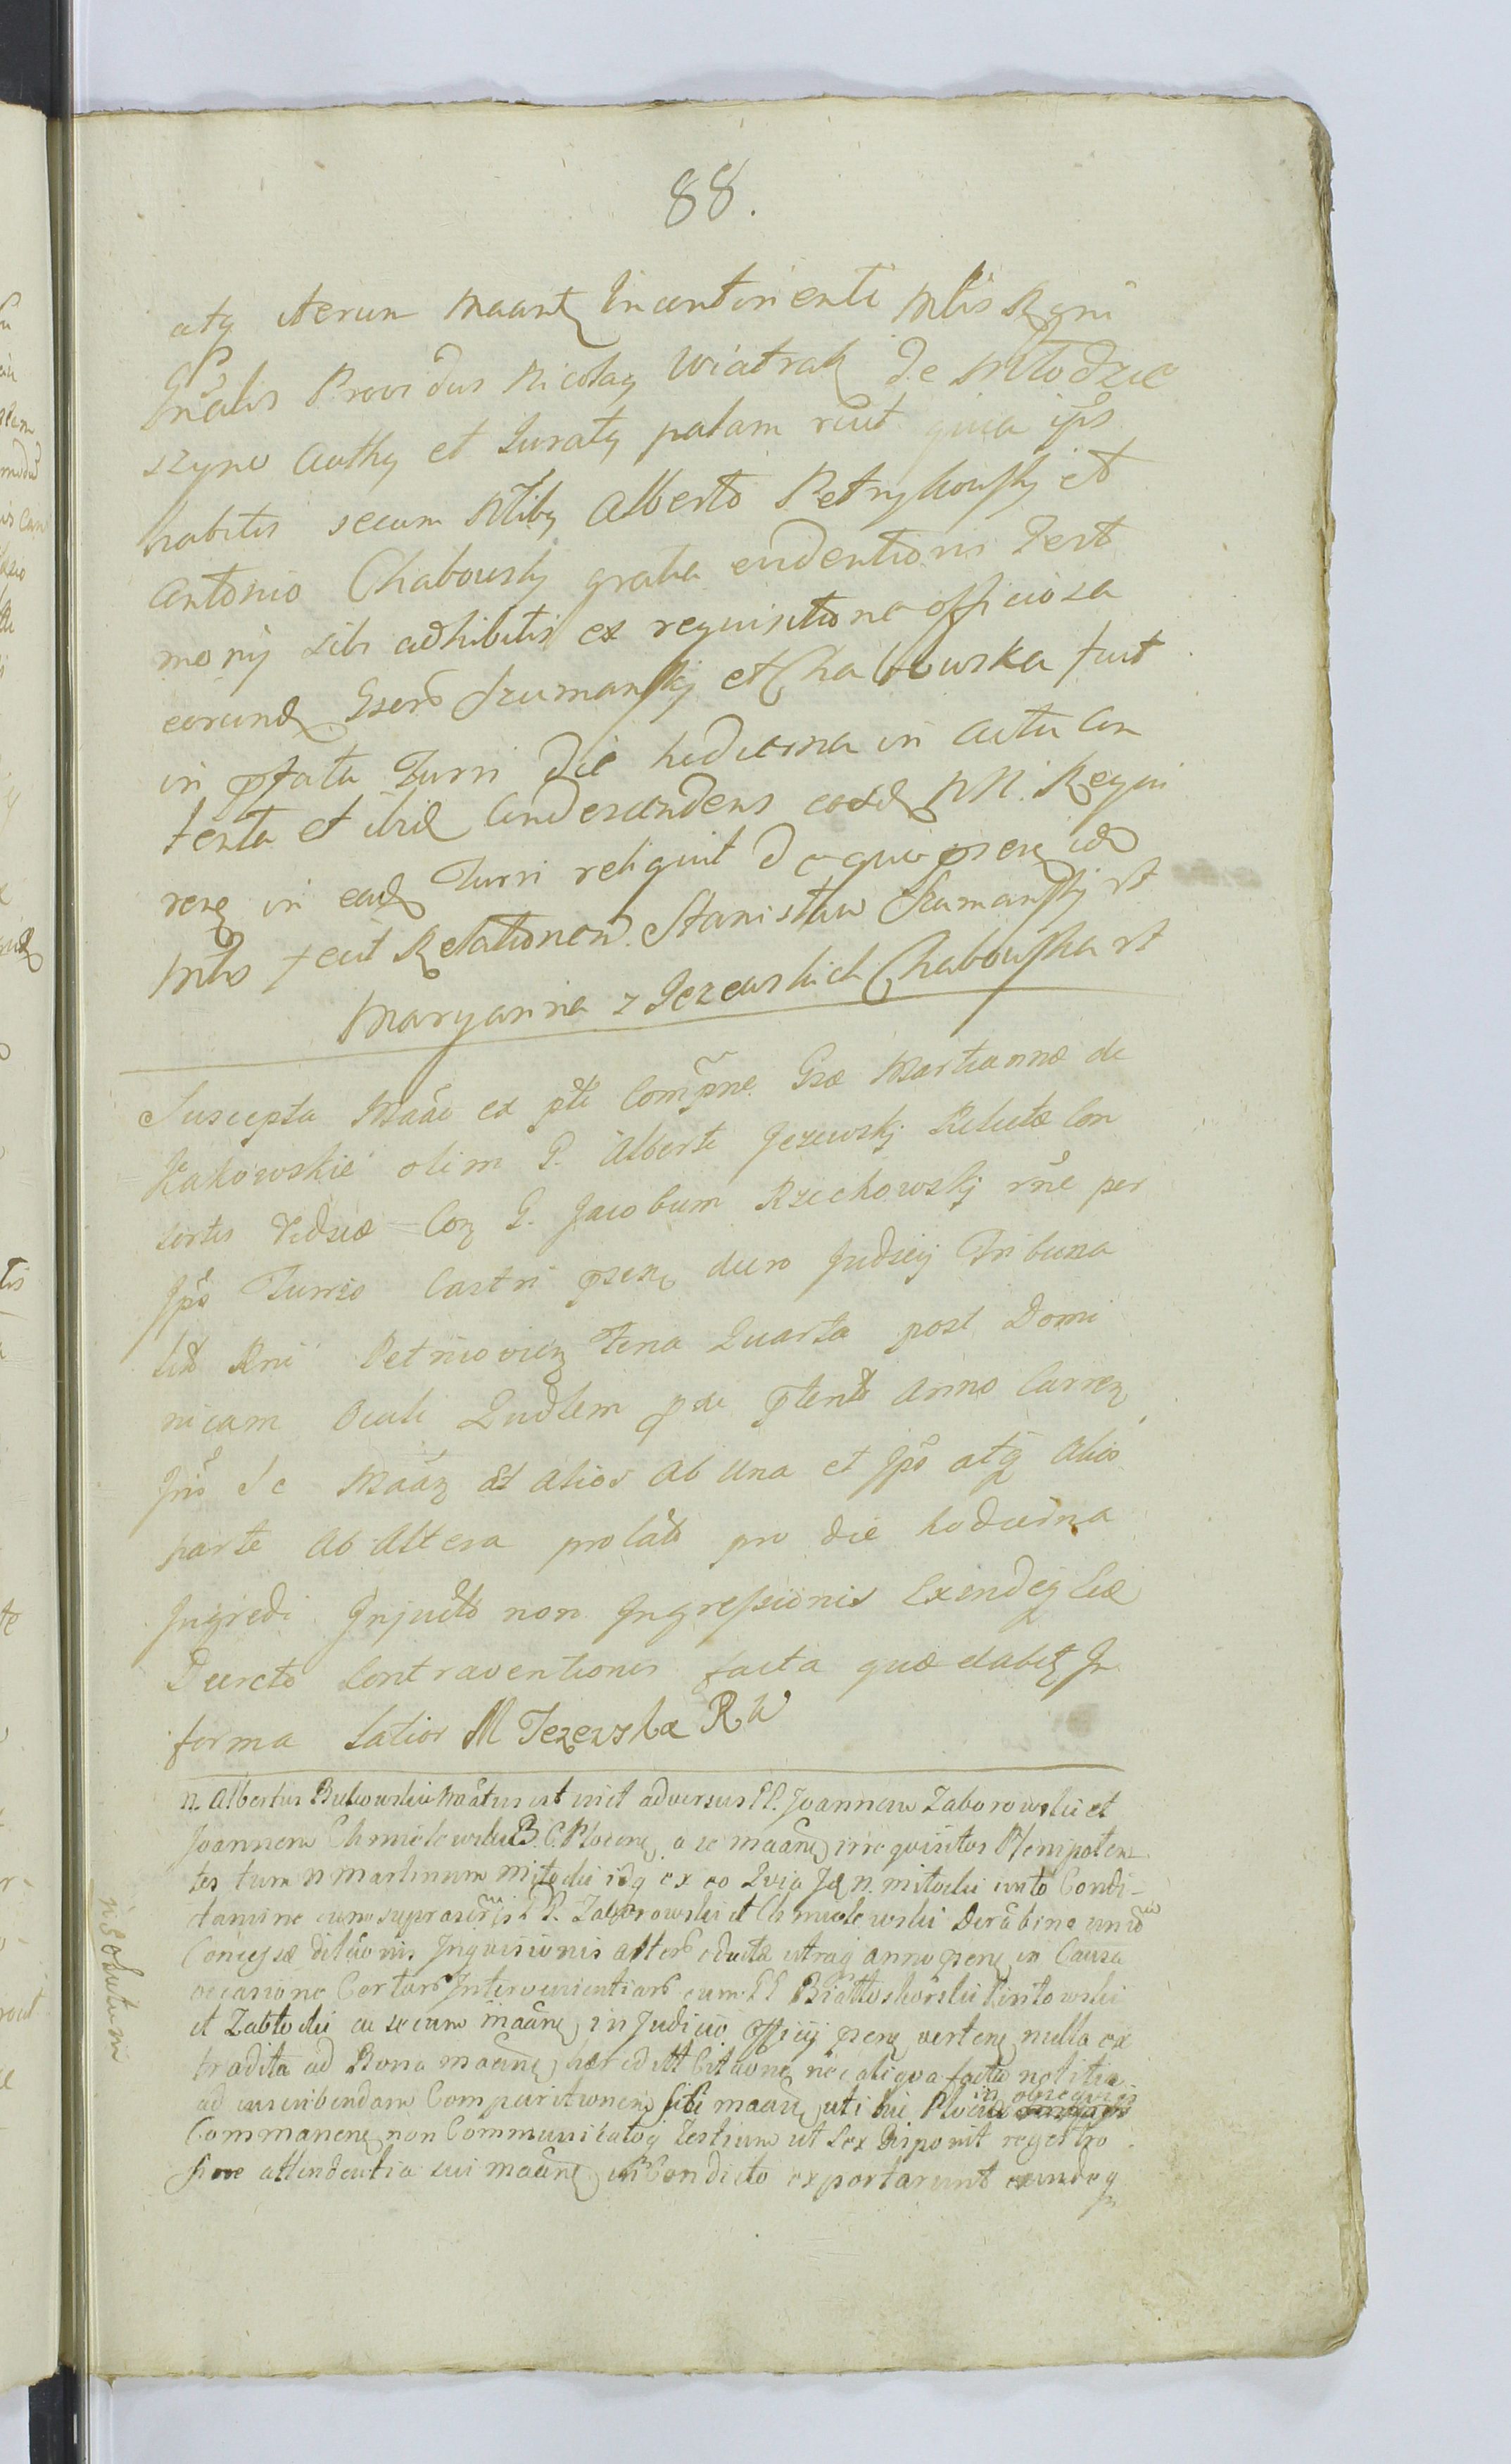 88.
atq iterum Maantq Incontinenti Mtis Rgni
Gnalis Providus Nicolaq Wiatrak de Młodzie
szyno authq et Juratq palam rcut quia ips
habitis secum Ntlibq Alberto Petrykowskj et
Antonio Chabowskj gratia evidentioris Test
monij sibi adhibitis ex requisitione officiosa
eorundq Gsorb Szumanskj et Chabowska fuit
in pfata Turri die hodierna in actu Con
tenta et ibid Condescendens eosdq NN. Requi
renq in eadq Turri reliquit de quo psenq ido
Mtlis fecit Relationem. Stanisław Szumanskj st
Maryanna z Jezewskich Chabowska st
Suscepta Maãe ex pte Compne Gsæ Martiannæ de
Kakowskie olim G. Alberti Jezewskj Relictæ Con
sortis Viduæ Coq G. Jacobum Rzechowskj rñe per
Jpõ Turris Castri psenq decro Judicij Tribuna
lit Rni Petricovien Feria Quarta post Domi
nicam Oculi Quadlem pxe ptento Anno Currenq
Jnõ Se Maãq et alios ab una et Jpõ atq alios
parte ab altera prolato pro die hodierna
Ingredi Injucto non Ingressionis Exindeq Eiũ
Decreto Contraventionis facta quæ dabitq In
forma latior M Jezewska RW
N. Albertus Bukowski Matus est venit adversus GG. Joannem Zaborowski et
Joannem Chmielewski B. C. Plocenq a se maanq irrequisitos Plenipoten
tes tum N Martinum Mitocki idq ex eo Quia Jd N. Mitocki iunto Condi-
ctamine cum suprascrmis GG. Zaborowski et Chmielewski Durabine unid
Concessæ dilaonis Inquisionis alterb eductæ utraq anno psenq in Causa
occasione Certarb Intervenientiarb cum GG Białłoskorski Kintowski
et Zabłocki ac secum maanq in Judicio Officij psenq vertenq nulla ex
tradita ad Bona maanq hæredit Citaonq nec aliqua facta notitia
ad inscribendam Comparitionem sibi maanq uti hic Plociæ in obsequijs
Commanenq non Communicatoq Testium ut Lex disponit regestro
sine attendentia sui maanq in Condicto exportarunt eundeq